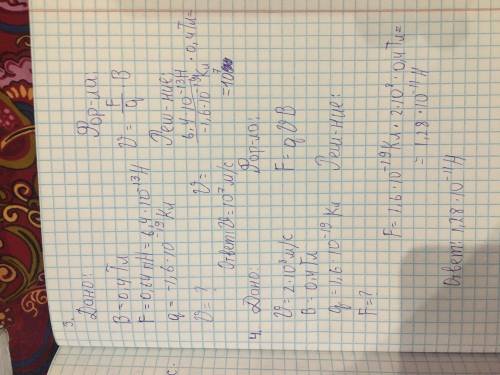 3.
Дано:
B = 0,4 Тл
F = 0,64 пН = 6,4·10⁻¹³ Н
q = -1,6·10⁻¹⁹ Кл
V = ?
Фор-ла
V = F/q · B
Реш-ние:
V = 6,4·10⁻¹³ Н / -1,6·10⁻¹⁹ Кл · 0,4 Тл =
= 10⁷
Ответ: V = 10⁷ м/с
4.
Дано:
V = 2·10⁸ м/с
B = 0,4 Тл
q = -1,6·10⁻¹⁹ Кл
F = ?
Фор-ла:
F = q V B
Реш-ние:
F = 1,6·10⁻¹⁹ Кл · 2·10⁸ · 0,4 Тл =
= 1,28·10⁻¹¹ Н
Ответ: 1,28·10⁻¹¹ Н
с.